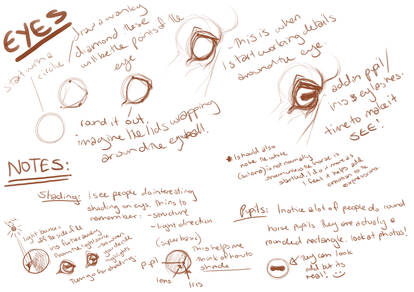 EYES
start with a
circle!
draw a wonky
diamond. These
will be the points of the
eye
rand it out.
imagine lids wrapping
around the eyeball!
- this is when
I start working details
around the eye
- add in pupil/
iris & eyelashes.
time to make it
SEE!
* I should also
note the white
(sclera) is not normally
shown unless the horse is
startled. I do it more as
I feel it helps add
emotion to the
expressions
NOTES:
Shading: I see people do interesting
shading on eyes. things to
remember: - structure
- light direction.
light bounces
off the side
no further away
from the light source
(super basic)
pupil
lens
iris
This helps me
think of how to
shade
Pupils: I notice a lot of people do round
horse pupils. they are actually a
rounded rectangle. look at photos!
They can look
odd but its
real! :)